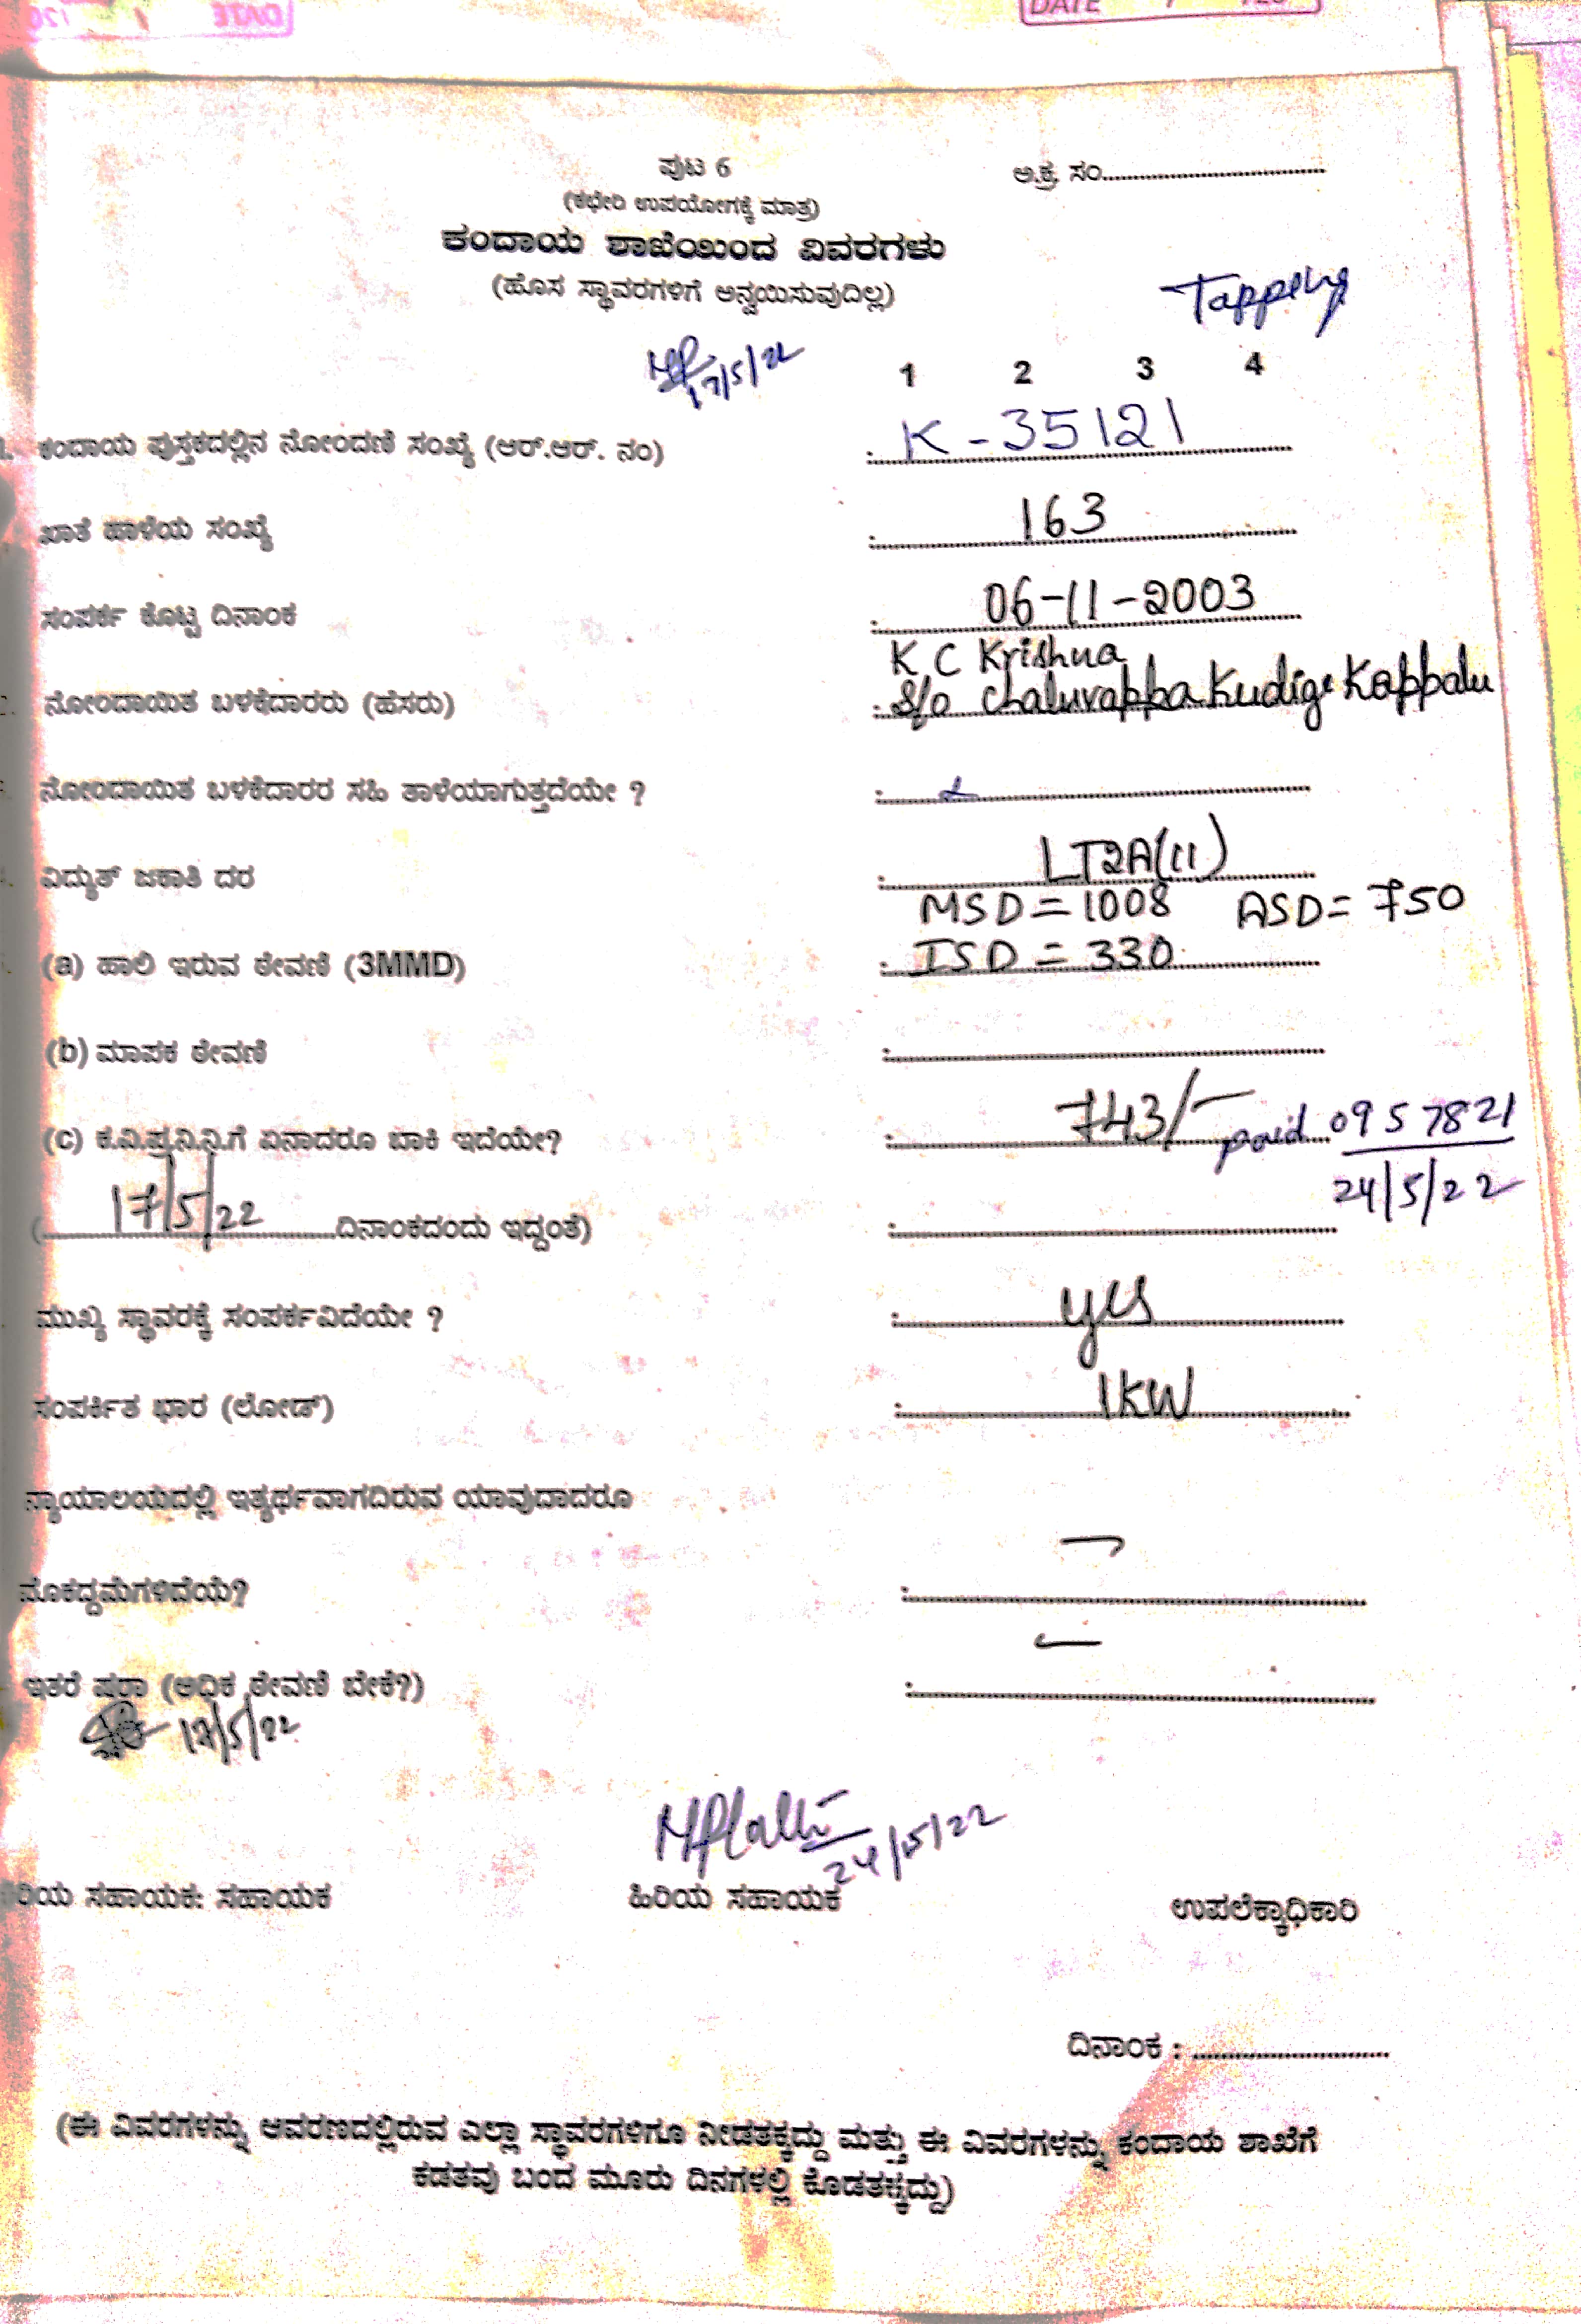 DATE / /20
ಪುಟ 6
ಅ.ಕ್ರ. ಸಂ..............................
(ಕಛೇರಿ ಉಪಯೋಗಕ್ಕೆ ಮಾತ್ರ)
ಕಂದಾಯ ಶಾಖೆಯಿಂದ ವಿವರಗಳು
(ಹೊಸ ಸ್ಥಾವರಗಳಿಗೆ ಅನ್ವಯಿಸುವುದಿಲ್ಲ)
17/5/22
1 2 3 4
ಕಂದಾಯ ಪುಸ್ತಕದಲ್ಲಿನ ನೋಂದಣಿ ಸಂಖ್ಯೆ (ಆರ್.ಆರ್. ನಂ) : K - 35121
ಖಾತೆ ಹಾಳೆಯ ಸಂಖ್ಯೆ : 163
ಸಂಪರ್ಕ ಕೊಟ್ಟ ದಿನಾಂಕ : 06-11-2003
K C Krishna
ನೋಂದಾಯಿತ ಬಳಕೆದಾರರು (ಹೆಸರು) : S/o Chaluvappa Kudige Koppalu
ನೋಂದಾಯಿತ ಬಳಕೆದಾರರ ಸಹಿ ತಾಳೆಯಾಗುತ್ತದೆಯೇ ? :
ವಿದ್ಯುತ್ ಜಕಾತಿ ದರ : LT2A(ii)
MSD = 1008 ASD = 750
(a) ಹಾಲಿ ಇರುವ ಠೇವಣಿ (3MMD) : ISD = 330
(b) ಮಾಪಕ ಠೇವಣಿ :
(c) ಕ.ವಿ.ಪ್ರ.ನಿ.ನಿ.ಗೆ ಏನಾದರೂ ಬಾಕಿ ಇದೆಯೇ? : 743/- paid 0957821
24/5/22
(17/5/22 ದಿನಾಂಕದಂದು ಇದ್ದಂತೆ) :
ಮುಖ್ಯ ಸ್ಥಾವರಕ್ಕೆ ಸಂಪರ್ಕವಿದೆಯೇ ? : yes
ಸಂಪರ್ಕಿತ ಭಾರ (ಲೋಡ್) : 1KW
ನ್ಯಾಯಾಲಯದಲ್ಲಿ ಇತ್ಯರ್ಥವಾಗದಿರುವ ಯಾವುದಾದರೂ
ಮೊಕದ್ದಮೆಗಳಿದೆಯೆ? : -
ಇತರೆ ಷರಾ (ಅಧಿಕ ಠೇವಣಿ ಬೇಕೆ?) : -
17/5/22
24/5/22
ಸಹಾಯಕ: ಸಹಾಯಕ
ಹಿರಿಯ ಸಹಾಯಕ
ಉಪಲೆಕ್ಕಾಧಿಕಾರಿ
ದಿನಾಂಕ : ..............................
(ಈ ವಿವರಗಳನ್ನು ಆವರಣದಲ್ಲಿರುವ ಎಲ್ಲಾ ಸ್ಥಾವರಗಳಿಗೂ ನೀಡತಕ್ಕದ್ದು ಮತ್ತು ಈ ವಿವರಗಳನ್ನು ಕಂದಾಯ ಶಾಖೆಗೆ
ಕಡತವು ಬಂದ ಮೂರು ದಿನಗಳಲ್ಲಿ ಕೊಡತಕ್ಕದ್ದು)